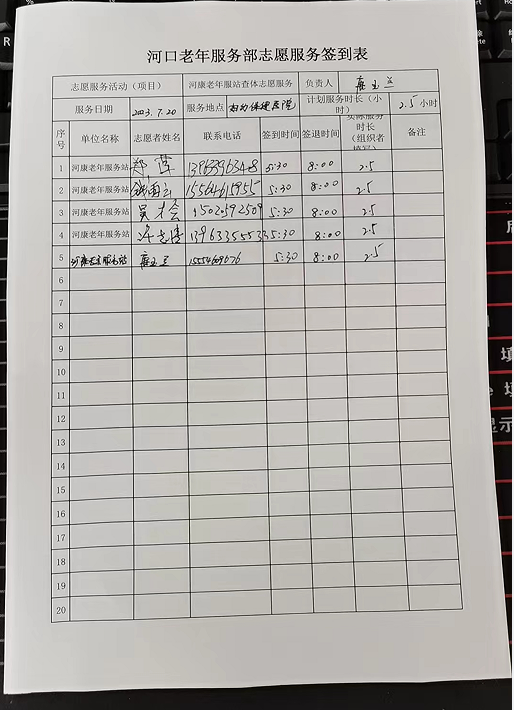 河口老年服务部志愿服务签到表
志愿服务活动（项目） 河康老年服站查体志愿服务 负责人
服务日期 2023.7.20 服务地点 妇幼保健医院 计划服务时长（小时） 2.5小时
序号 单位名称 志愿者姓名 联系电话 签到时间 签退时间 实际服务时长（组织者填写） 备注
1 河康老年服务站 郑 5:30 8:00 2.5
2 河康老年服务站 15564615955 5:30 8:00 2.5
3 河康老年服务站 吴才会 15020592509 5:30 8:00 2.5
4 河康老年服务站 13963355533 5:30 8:00 2.5
5 河康老年服务站 15554609076 5:30 8:00 2.5
6
7
8
9
10
11
12
13
14
15
16
17
18
19
20